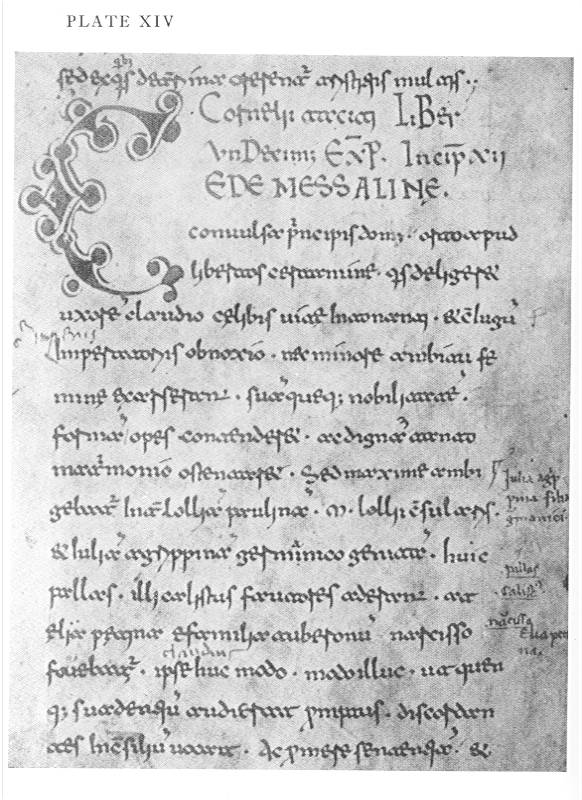 PLATE XIV
sed ex q̄s deterrima orerent̄ tristitiis multis
Cornelii taciti LiBer
VnDecim; EXP̄. Incip̄ xii
C EDE MESSALINE.
conuulsa p̄ncipis dom; · orto apud
libertos certamine · q̄s deligeret
uxorē claudio celibis uite intoleranti · & c̄iugū
Imperatoriis obnoxio · nec minore ambitu fe
mine exarserant · suā queq; nobilitatē ·
formā opes contendere · ac dignā tanto
matrimonio ostentare · Sed maxime ambi
gebat̄ int̄ Lolliā paulinā · M · lollii c̄sularis ·
& Iuliā agrippinā germanico genitā · huic
pallas · illi calistus fautores aderant · at
elia petina e familia tuberonū narcisso
claudius
fouebat̄ · ipse huc modo · modo illuc · ut quen
q; suadentiū audierat promptus · discordan
tes in c̄siliū uocat · Ac promere sententiā · &
Iulia agrip
pina filia
germanici
pallas
Calist
narcisus
Elia peti
na.